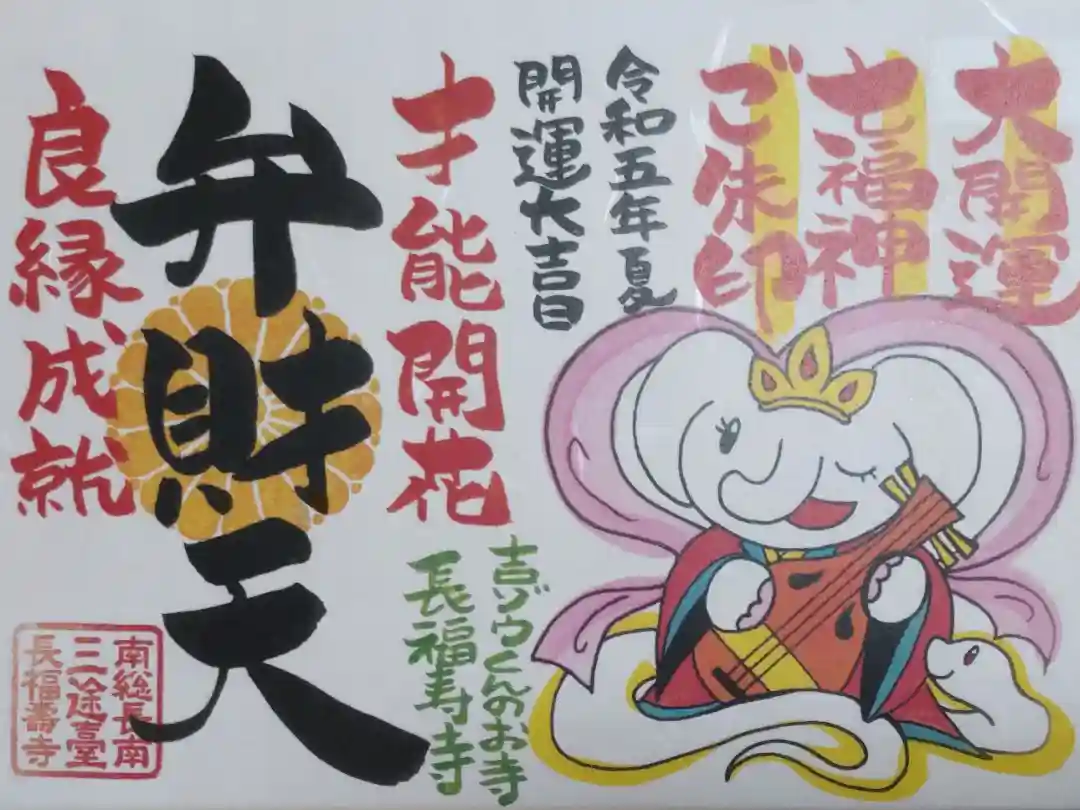 大開運
七福神
ご朱印
令和五年夏
開運大吉日
才能開花
弁財天
良縁成就
吉ゾウくんのお寺
長福寿寺
南総長南
三途台
長福壽寺